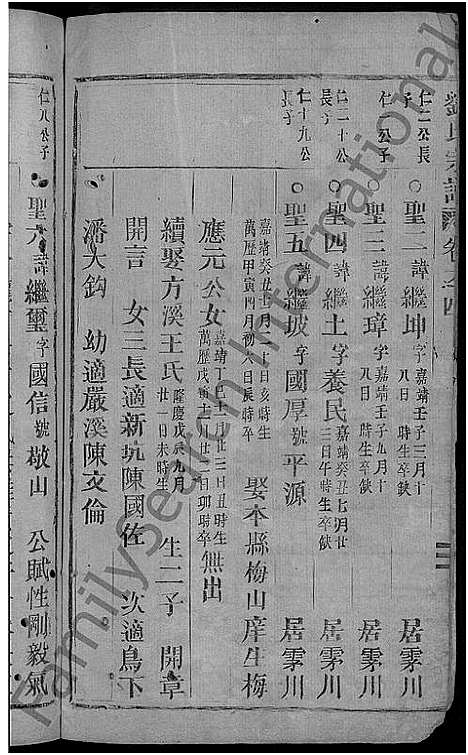 劉氏宗譜 卷之四
仁二公長子
聖二諱繼坤字 嘉靖壬子三月十八日 時生卒缺 居霅川
仁 公子
聖三諱繼璋字 嘉靖壬子九月十八日 時生卒缺 居霅川
仁二十公長子
聖四諱繼土字養民 嘉靖癸丑七月廿三日午時生卒缺 居霅川
仁十九公長子
聖五諱繼坡字國厚號平源 居霅川
嘉靖癸丑十二月十日亥時生
萬歷甲寅四月初六日辰時卒 娶本縣梅山庠生梅
應元公女 嘉靖丁巳十二月廿三日丑時生
萬歷戊寅十二月廿二日卯時卒 無出
續娶方溪王氏 隆慶戊辰九月廿一日未時生 生二子 開章
開言 女三長適新坑陳國佐 次適烏下
潘大鈎 幼適嚴溪陳文倫
仁八公子
聖六諱繼璽字國信號敬山 公賦性剛毅氣
FamilySearch International